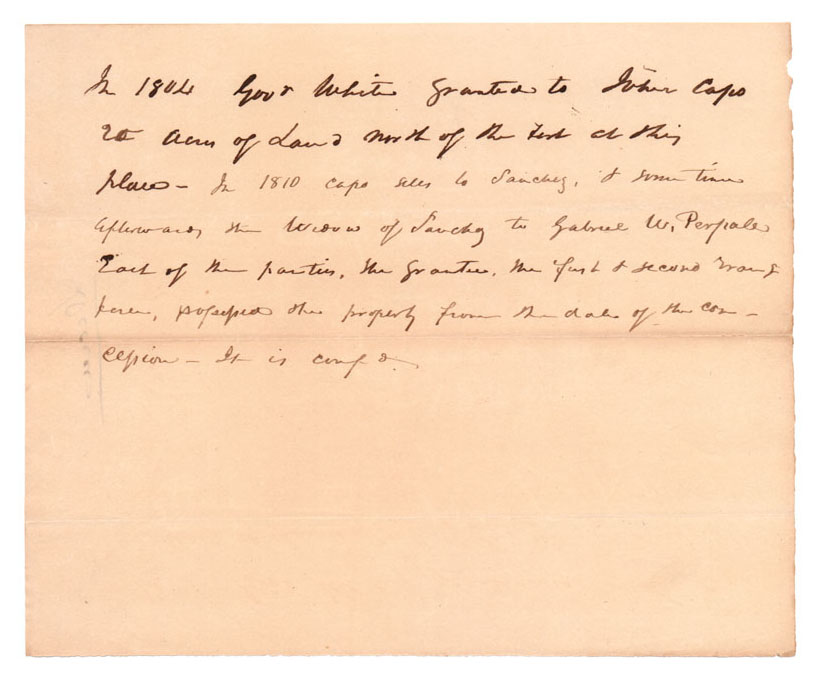 In 1804 Govr White granted to John Capo
20 Acres of Land North of the Fort at this
place - In 1810 Capo sells to Sanchez, & some time
afterwards the Widow of Sanchez to Gabriel W. Perpall
Each of the parties, the Grantee, the first & second trans
feree, possessed the property from the date of the con -
cession - It is conf d.